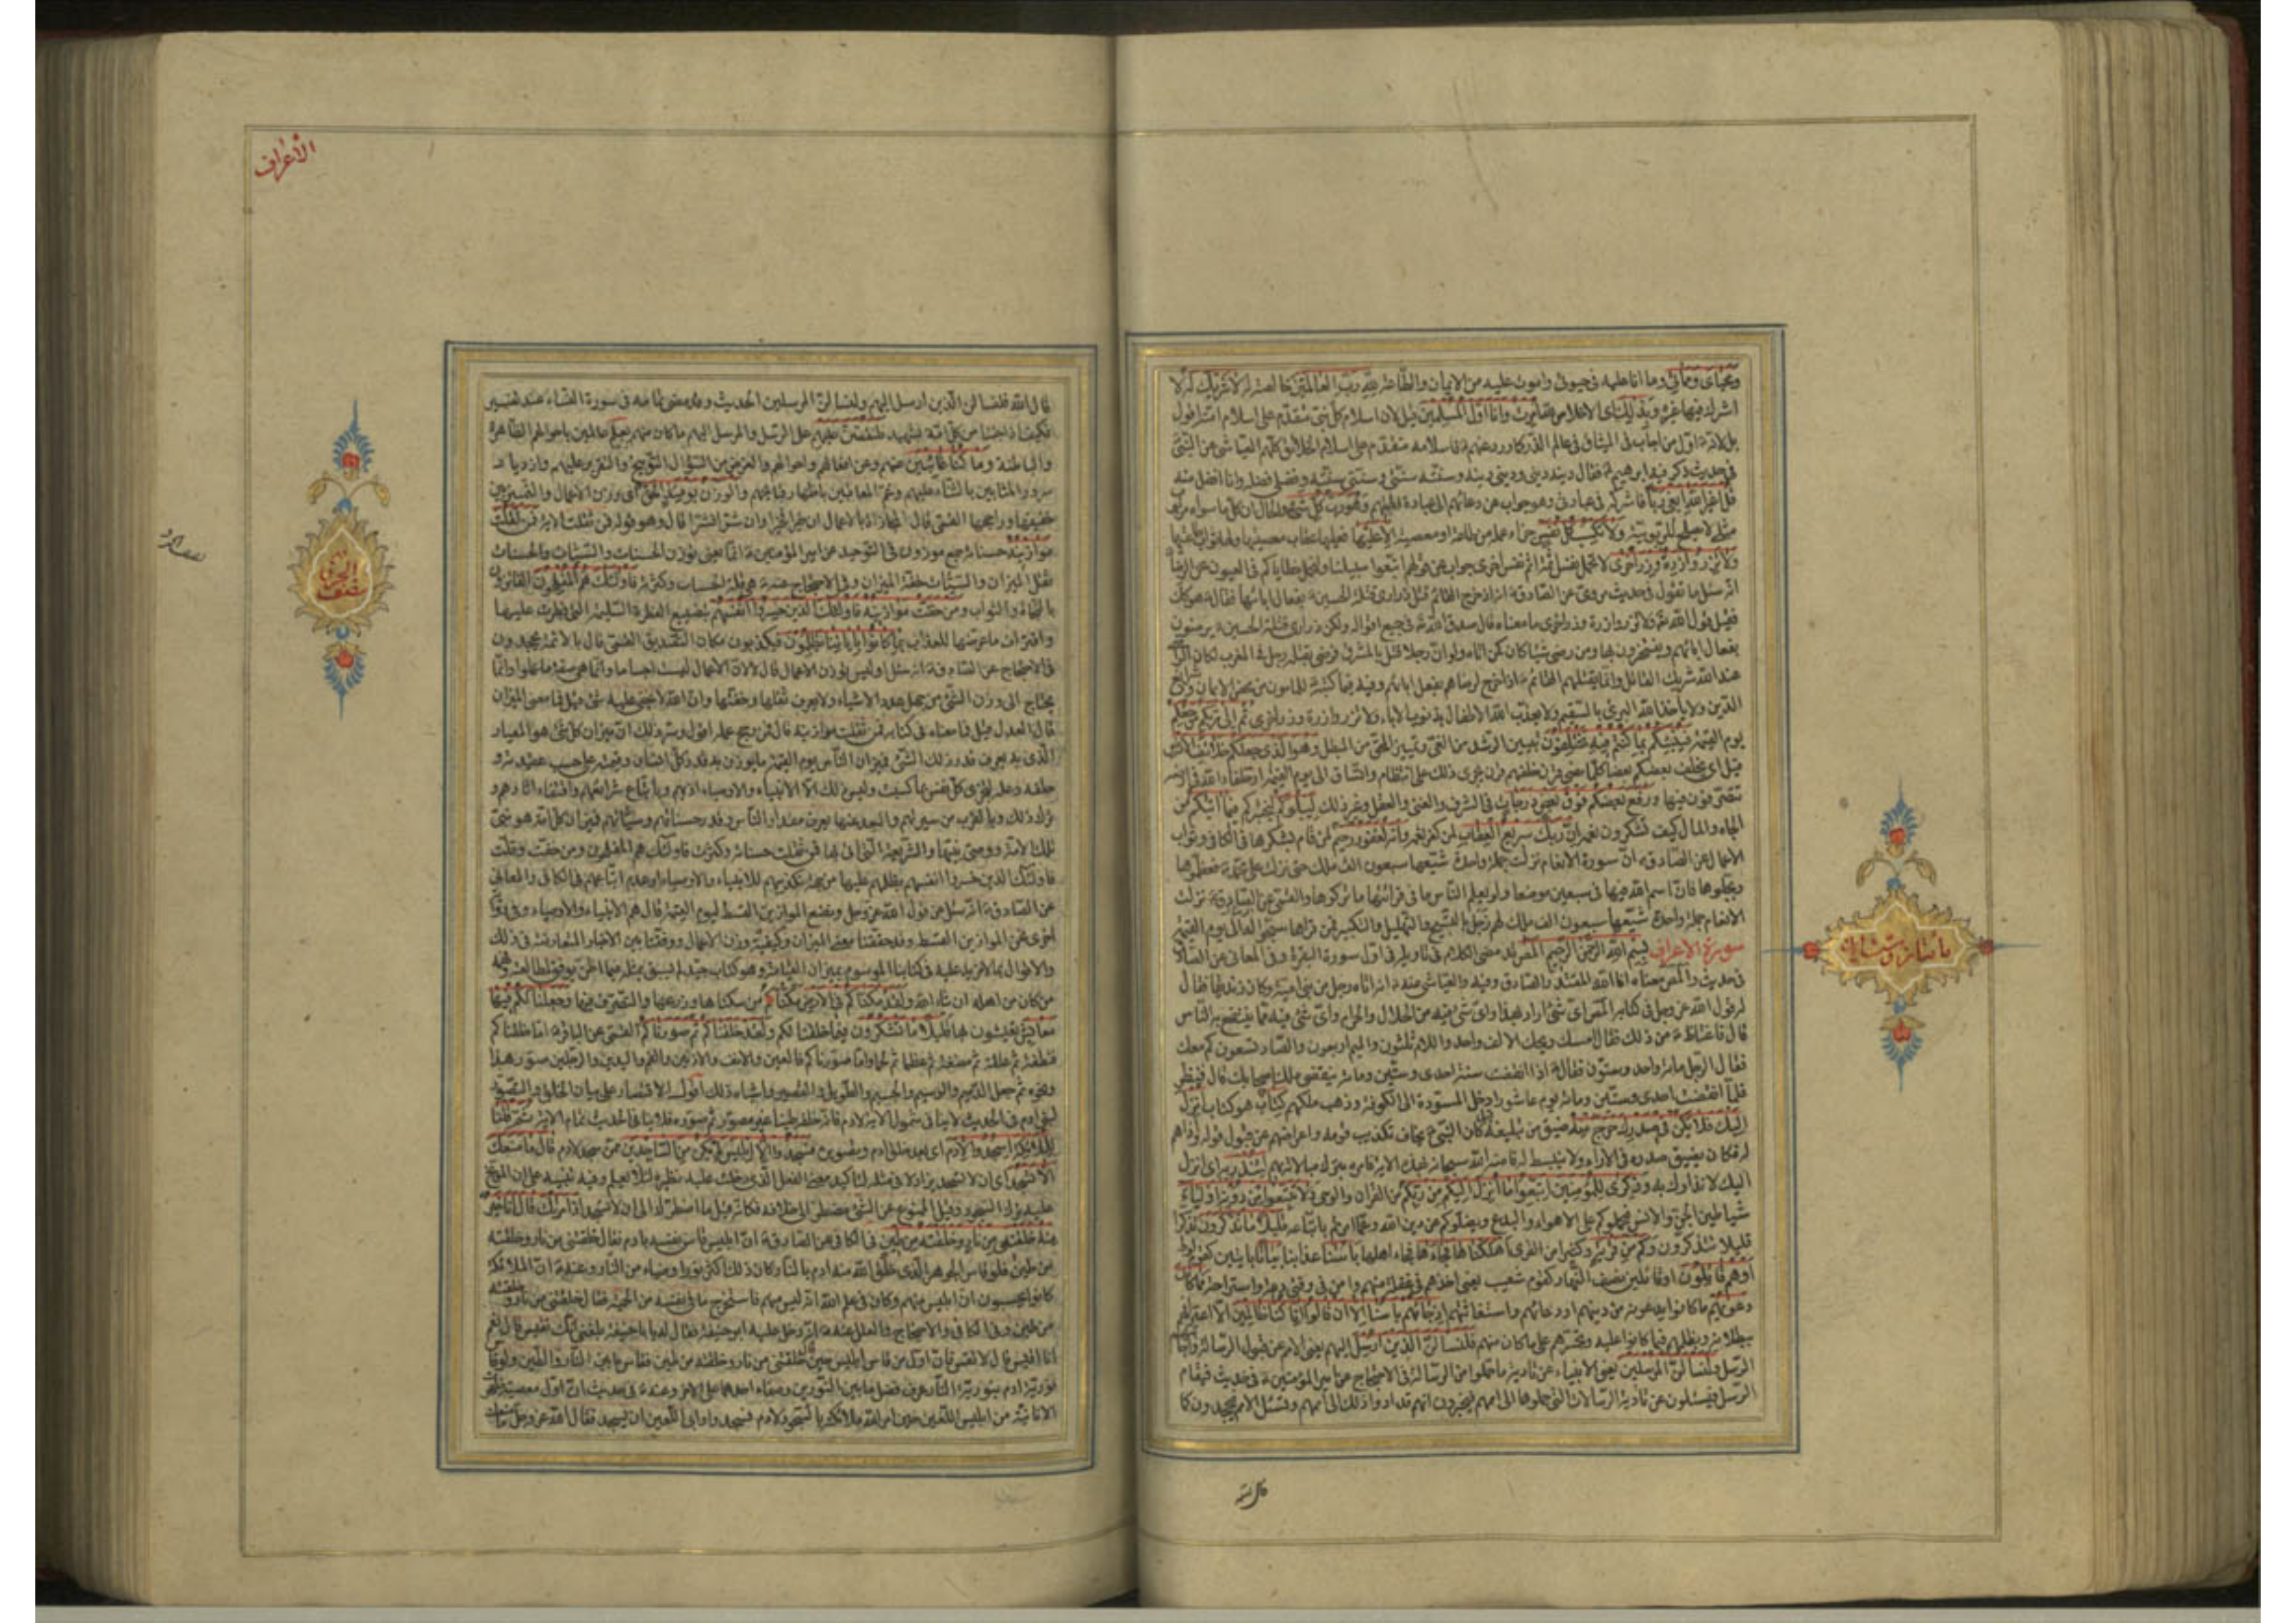 ومحياى ومماتى وما انا عليه فى حيوتى واموت عليه من الايمان والطاعة لله رب العالمين خالصة له لا شريك له لا
اشرك فيها غيره وبذلك اى الاخلاص امرت وانا اول المسلمين قيل لان اسلام كل نبى متقدم على اسلام امته اقول
بل لانه اول من اجاب فى الميثاق فى عالم الذر كما ورد عنهم فاسلامه متقدم على اسلام الخلائق كلهم العياشى عن النبى
فى حديث ذكر فيه ابرهيم فقال دينه دينى ودينى دينه وسنته سنتى وسنتى سنته وفضلى فضله وانا افضل منه
قل اغير الله ابغى ربا فاشركه فى عبادتى وهو جواب عن دعائهم الى عبادة الهتهم وهو رب كل شئ والحال ان كل ما سواه مربوب
مثلى لا يصلح للربوبية ولا تكسب كل نفس جزاء عمل من طاعة او معصية الا عليها فعليها عقاب معصيتها ولها ثواب طاعتها
ولا تزر وازرة وزر اخرى لا تحمل نفس اثمة اثم نفس اخرى جواب عن قولهم اتبعوا سبيلنا ولنحمل خطاياكم فى العيون عن الرضا
انه سئل ما تقول فى حديث مروى عن الصادق انه اذا خرج القائم قتل ذرارى قتلة الحسين بفعال ابائها فقال هو كذلك
فقيل قول الله ولا تزر وازرة وزر اخرى ما معناه قال صدق الله فى جميع اقواله ولكن ذرارى قتلة الحسين يرضون
بفعال ابائهم ويفتخرون بها ومن رضى شيئا كان كمن اتاه ولو ان رجلا قتل بالمشرق فرضى بقتله رجل فى المغرب لكان الراضى
عند الله شريك القاتل وانما يقتلهم القائم اذا خرج لرضاهم بفعل ابائهم وفيه فيما كتبه للمامون من محض الايمان وشرايع
الدين ولا ياخذ الله البرئ بالسقيم ولا يعذب الله الاطفال بذنوب الاباء ولا تزر وازرة وزر اخرى ثم الى ربكم مرجعكم
يوم القيمة فينبئكم بما كنتم فيه تختلفون بتبيين الرشد من الغى وتمييز المحق من المبطل وهو الذى جعلكم خلائف الارض
قيل اى يخلف بعضكم بعضا كلما مضى قرن خلفهم قرن يجرى ذلك على انتظام واتساق الى يوم القيمة او خلفاء الله فى ارضه
تتصرفون فيها ورفع بعضكم فوق بعض درجات فى الشرف والغنى والعقل وغير ذلك ليبلوكم ليختبركم فيما اتيكم من
الجاه والمال كيف تشكرون نعمه ان ربك سريع العقاب لمن كفر نعمه وانه لغفور رحيم لمن قام بشكرها فى الكافى وثواب
الاعمال عن الصادق ان سورة الانعام نزلت جملة واحدة شيعها سبعون الف ملك حتى نزلت على محمد فعظموها
وبجلوها فان اسم الله فيها فى سبعين موضعا ولو يعلم الناس ما فى قرائتها ما تركوها والقمى عن الصادق نزلت
الانعام جملة واحدة شيعها سبعون الف ملك لهم زجل بالتسبيح والتهليل والتكبير فمن قراها سبحوا له الى يوم القيمة
سورة الاعراف بسم الله الرحمن الرحيم المص قد مضى الكلام فى تاويله فى اول سورة البقرة وفى المعانى عن الصادق
فى حديث والمص معناه انا الله المقتدر الصادق وفيه والعياشى عنه انه اتاه رجل من بنى امية وكان زنديقا فقال
له قول الله عز وجل فى كتابه المص اى شئ اراد بهذا واى شئ فيه من الحلال والحرام واى شئ فيه مما ينتفع به الناس
قال فاغتاظ من ذلك فقال امسك ويحك الالف واحد واللام ثلثون والميم اربعون والصاد تسعون كم معك
فقال الرجل مائة واحد وستون فقال اذا انقضت سنة احدى وستين ومائة ينقضى ملك اصحابك قال فنظر
فلما انقضت احدى وستين ومائة يوم عاشورا دخل المسودة الى الكوفة وذهب ملكهم كتاب هو كتاب انزل
اليك فلا يكن فى صدرك حرج منه ضيق من تبليغه كان النبى يخاف تكذيب قومه واعراضهم عن قبول قوله واذاهم
له فكان يضيق صدره فى الاداء ولا ينبسط له فامنه الله سبحانه بهذه الاية وامره بترك مبالاتهم لتنذر به اى انزل
اليك لانذارك به وذكرى للمؤمنين اتبعوا ما انزل اليكم من ربكم من القران والوحى ولا تتبعوا من دونه اولياء
شياطين الجن والانس فيحملوكم على الاهواء والبدع ويضلوكم عن دين الله وعما امرتم باتباعه قليلا ما تذكرون تذكرا
قليلا تتذكرون وكم من قرية وكثيرا من القرى اهلكناها فجاءها فجاء اهلها باسنا عذابنا بياتا بايتين كقوم لوط
او هم قائلون او قائلين نصف النهار كقوم شعيب يعنى اخذهم فى غفلة منهم وامن وفى وقتى دعة واستراحة فما كان
دعويهم ما كانوا يدعونه من دينهم او دعائهم واستغاثتهم اذ جائهم باسنا الا ان قالوا انا كنا ظالمين الا اعترافهم
ببطلانه وبظلمهم فيما كانوا عليه وتحسرهم على ما كان منهم فلنسئلن الذين ارسل اليهم يعنى الامم عن قبول الرسالة واجابتهم
الرسل ولنسئلن المرسلين يعنى الانبياء عن تادية ما حملوا من الرسالة فى الاحتجاج عن امير المؤمنين فى حديث فيقام
الرسل فيسئلون عن تادية الرسالات التى حملوها الى اممهم فيخبرون انهم قد ادوا ذلك الى اممهم وتسئل الامم فيجحدون كما
قال الله
الاعراف
قال الله فلنسئلن الذين ارسل اليهم ولنسئلن المرسلين الحديث وقد مضى تمامه فى سورة النساء عند تفسير
فكيف اذا جئنا من كل امة بشهيد فلنقصن عليهم على الرسل والمرسل اليهم ما كان منهم بعلم عالمين باحوالهم الظاهرة
والباطنة وما كنا غائبين عنهم وعن افعالهم واحوالهم والغرض من السؤال التوبيخ والتقرير عليهم وازدياد
سرور المثابين بالثناء عليهم وغم المعاقبين باظهار قبايحهم والوزن يومئذ الحق اى وزن الاعمال والتمييز بين
خفيفها وراجحها القمى قال المجازاة بالاعمال ان خيرا فخيرا وان شرا فشرا قال وهو قوله فمن ثقلت الاية فمن ثقلت
موازينه حسناته جمع موزون فى التوحيد عن امير المؤمنين انما يعنى بوزن الحسنات والسيئات والحسنات
ثقل الميزان والسيئات خفة الميزان وفى الاحتجاج عنه هى قلة الحساب وكثرته فاولئك هم المفلحون الفائزون
بالنجاة والثواب ومن خفت موازينه فاولئك الذين خسروا انفسهم بتضييع الفطرة السليمة التى فطرت عليها
واقتراف ما عرضها للعذاب بما كانوا باياتنا يظلمون فيكذبون مكان التصديق القمى قال بالائمة يجحدون
فى الاحتجاج عن الصادق انه سئل اوليس توزن الاعمال قال لا لان الاعمال ليست اجساما وانما هى صفة ما عملوا وانما
يحتاج الى وزن الشئ من جهل عدد الاشياء ولا يعرف ثقلها وخفتها وان الله لا يخفى عليه شئ قيل فما معنى الميزان
قال العدل قيل فما معناه فى كتابه فمن ثقلت موازينه قال فمن رجح عمله اقول وسر ذلك ان ميزان كل شئ هو المعيار
الذى به يعرف قدر ذلك الشئ فميزان الناس يوم القيمة ما يوزن به قدر كل انسان وقيمته على حسب عقيدته و
خلقه وعمله لتجزى كل نفس بما كسبت وليس ذلك الا الانبياء والاوصياء اذ بهم وباتباع شرائعهم واقتفاء اثارهم و
ترك ذلك وبالقرب من سيرتهم والبعد عنها يعرف مقدار الناس وقدر حسناتهم وسيئاتهم فميزان كل امة هو نبى
تلك الامة ووصى نبيها والشريعة التى اتى بها فمن ثقلت حسناته وكثرت فاولئك هم المفلحون ومن خفت وقلت
فاولئك الذين خسروا انفسهم بظلمهم عليها من جهة تكذيبهم للانبياء والاوصياء او عدم اتباعهم فى الكافى والمعانى
عن الصادق انه سئل عن قول الله عز وجل ونضع الموازين القسط ليوم القيمة قال هم الانبياء والاوصياء وفى رواية
اخرى نحن الموازين القسط وقد حققنا معنى الميزان وكيفية وزن الاعمال ووفقنا بين الاخبار المتعارضة فى ذلك
والاقوال بما لا مزيد عليه فى كتابنا الموسوم بميزان القيامة وهو كتاب جيد لم يسبق بمثله فيما اظن يوفق لمطالعته وفهمه
من كان من اهله ان شاء الله ولقد مكناكم فى الارض مكناكم من سكناها وزرعها والتصرف فيها وجعلنا لكم فيها
معايش تعيشون بها قليلا ما تشكرون فيما خلقنا لكم ولقد خلقناكم ثم صورناكم القمى عن الباقر اما خلقناكم
فنطفة ثم علقة ثم مضغة ثم عظما ثم لحما واما صورناكم فالعين والانف والاذنين والفم واليدين والرجلين صور هذا
ونحوه ثم جعل الدميم والوسيم والجسيم والطويل والقصير واشباه ذلك اقول الاقتصار على بيان الخلق والتصوير
لبنى ادم فى الحديث لا ينافى شمول الاية لادم فانه خلقه طينا غير مصور ثم صوره فلا ينافى الحديث تمام الاية ثم قلنا
للملائكة اسجدوا لادم اى بعد خلق ادم وتصويره فسجدوا الا ابليس لم يكن من الساجدين ممن سجد لادم قال ما منعك
الا تسجد اى ان لا تسجد يزاد لا فى مثله لتاكيد معنى الفعل الذى دخلت عليه نظيره لئلا يعلم وفيه تنبيه على ان الموبخ
عليه ترك السجود وقيل الممنوع عن الشئ مضطر الى خلافه فكانه قيل ما اضطرك الى ان لا تسجد اذ امرتك قال انا خير
منه خلقتنى من نار وخلقته من طين فى الكافى عن الصادق ان ابليس قاس نفسه بادم فقال خلقتنى من نار وخلقته
من طين فلو قاس الجوهر الذى خلق الله منه ادم بالنار كان ذلك اكثر نورا وضياء من النار وعنه ان الملائكة
كانوا يحسبون ان ابليس منهم وكان فى علم الله انه ليس منهم فاستخرج ما فى نفسه من الحمية فقال خلقتنى من نار وخلقته
من طين وفى الكافى والاحتجاج والعلل عنه انه دخل عليه ابو حنيفة فقال له يا با حنيفة بلغنى انك تقيس قال نعم
انا اقيس قال لا تقس فان اول من قاس ابليس حين قال خلقتنى من نار وخلقته من طين فقاس ما بين النار والطين ولو قاس
نورية ادم بنورية النار عرف فضل ما بين النورين وصفاء احدهما على الاخر وعنه فى حديث ان اول معصية ظهرت
الانانية من ابليس اللعين حين امر الله ملائكته بالسجود لادم فسجدوا وابى اللعين ان يسجد فقال الله عز وجل ما منعك